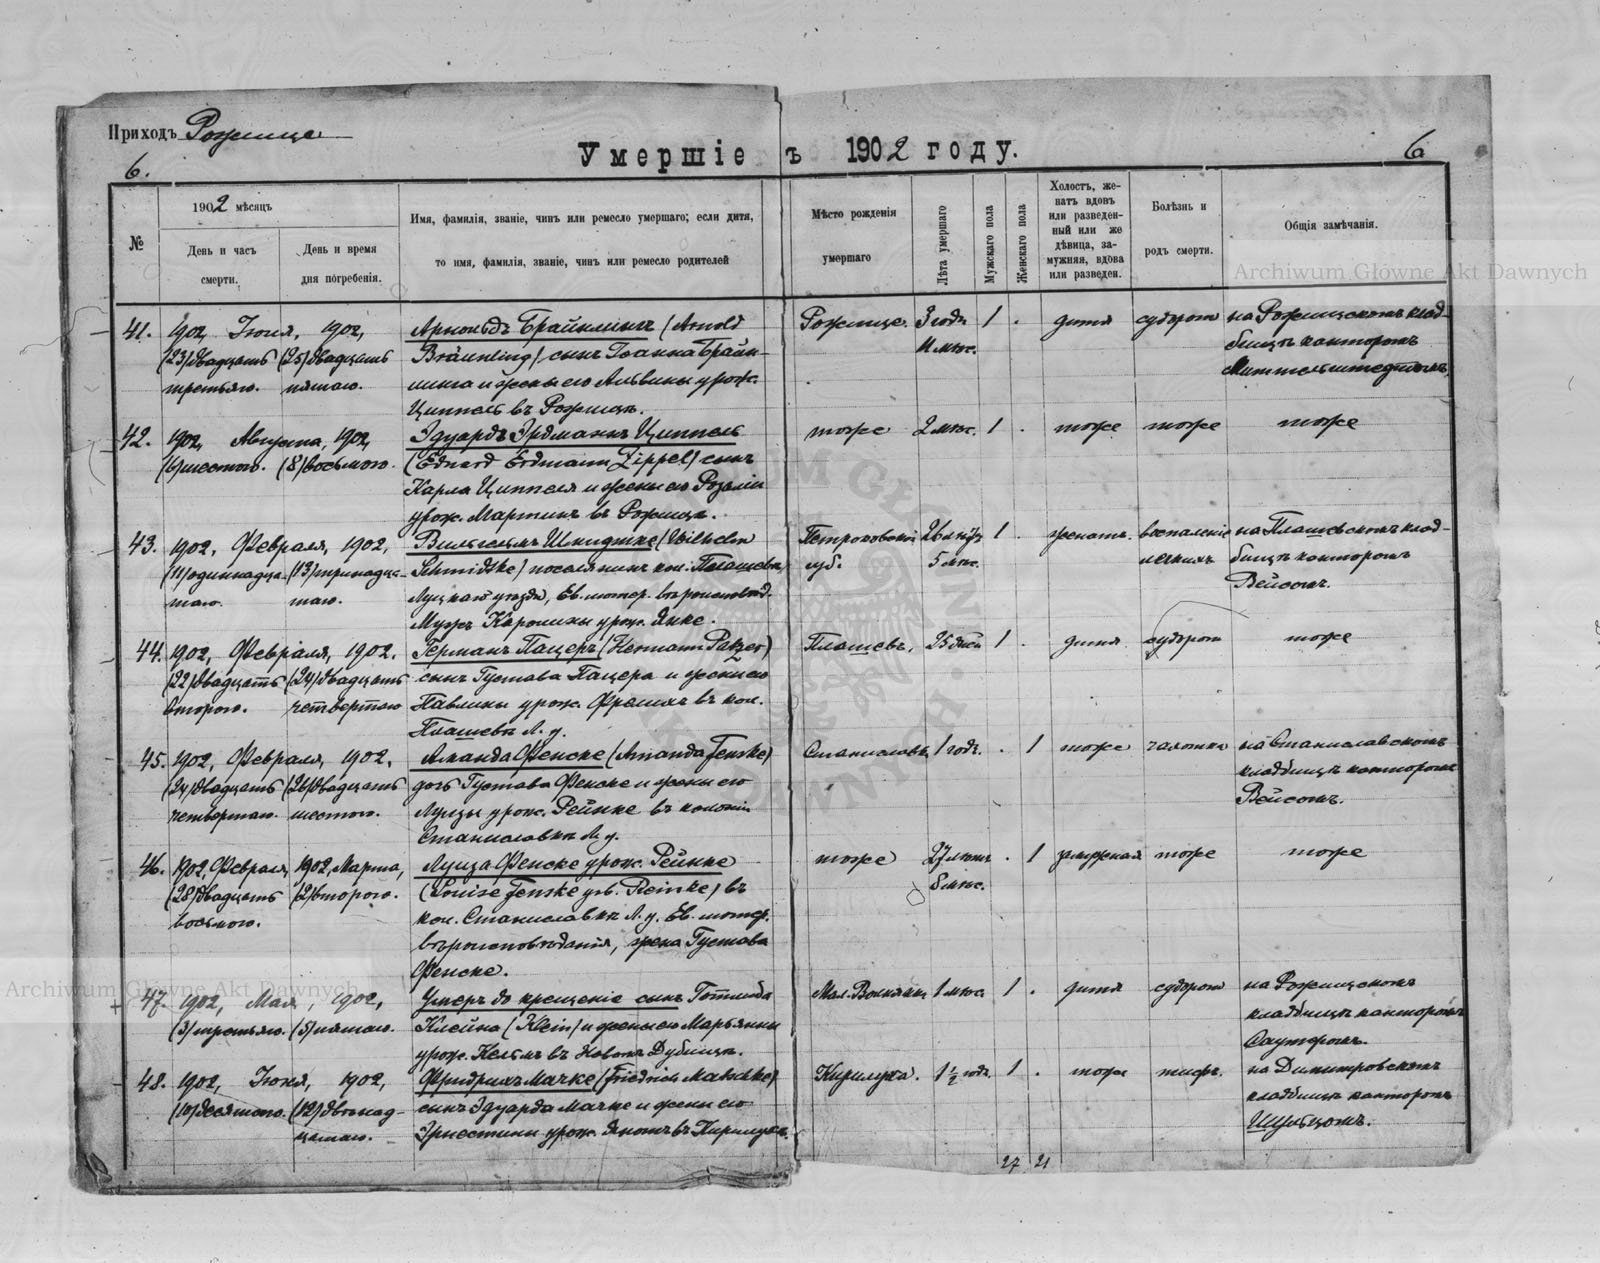 Приходъ Рожище
6.
Умершіе ъ 1902 году.
6а
№
1902 мѣсяцъ
День и часъ
смерти.
День и время
дня погребенія.
Имя, фамилія, званіе, чинъ или ремесло умершаго; если дитя,
то имя, фамилія, званіе, чинъ или ремесло родителей
Мѣсто рожденія
умершаго
Лѣта умершаго
Мужскаго пола
Женскаго пола
Холостъ, же-
натъ вдовъ
или разведен-
ный или же
дѣвица, за-
мужняя, вдова
или разведен.
Болѣзнь и
родъ смерти.
Общія замѣчанія.
Archiwum Główne Akt Dawnych
41. 1902, Іюня, 1902, Арнольдъ Брайнлингъ (Arnold Рожище. 3 года 1 . дитя судороги на Рожищскомъ клад-
(23) двадцать (25) двадцать Bräunling) сынъ Іоанна Брайн- 11 мѣс. бищѣ канторомъ
третьяго. пятаго. линга и жены его Альвины урож. Миттельштедтомъ.
Циппель въ Рожищѣ.
42. 1902, Августа, 1902, Эдуардъ Эрдманъ Циппель тоже 2 мѣс. 1 . тоже тоже тоже
(6) шестого. (8) восьмого. (Eduard Erdmann Zippel) сынъ
Карла Циппеля и жены его Розаліи
урож. Мартинъ въ Рожищѣ.
43. 1902, Февраля, 1902, Вильгельмъ Шмидтке (Wilhelm Петроковской 1 женатъ. воспаленіе на Плашевскомъ клад-
(11) одиннадца- (13) тринадца- Schmidtke) поселянинъ кол. Плашевъ, губ. 5 мѣс. легкихъ бищѣ канторомъ
таго. таго. Луцкаго уѣзда, Ев. лютер. вѣроисповѣд. Вейсомъ.
Мужъ Каролины урож. Янке.
44. 1902, Февраля, 1902. Германъ Пацеръ (Hermann Patzer) Плашевъ. 25 дней 1 . дитя судороги тоже
(22) двадцать (24) двадцать сынъ Густава Пацера и жены его
второго. четвертаго Павлины урож. въ кол.
Плашевъ Л. у.
45. 1902, Февраля, 1902, Аманда Фенске (Amanda Fenske) Станиславъ, 1 годъ. . 1 тоже чахотка на Станиславскомъ
(24) двадцать (26) двадцать дочь Густава Фенске и жены его кладбищѣ канторомъ
четвертаго. шестого. Луизы урож. Рейнке въ колоніи Вейсомъ.
Станиславкѣ Л. у.
46. 1902, Февраля, 1902, Марта, Луиза Фенске урож. Рейнке тоже 27 лѣтъ . 1 замужняя тоже тоже
(28) двадцать (2) второго. (Louise Fenske geb. Reinke) въ 8 мѣс.
восьмого. кол. Станиславкѣ Л. у. Ев. лютер.
вѣроисповѣданія, жена Густава
Фенске.
Archiwum Główne Akt Dawnych
47. 1902, Мая, 1902, Умеръ до крещенія сынъ Готлиба Мал. 1 мѣс. 1 . дитя судороги на Рожищскомъ
(3) третьяго. (5) пятаго. Клейна (Klein) и жены его Марьянны кладбищѣ канторомъ
урож. въ Новомъ Дубищѣ. Саутеромъ.
48. 1902, Іюня, 1902, Фридрихъ Мачке (Friedrich Matschke) Кирилука. 1 1/2 года 1 . тоже тифъ. на Димитровскомъ
(10) десятого. (12) двѣнад- сынъ Эдуарда Мачке и жены его кладбищѣ канторомъ
цатаго. Эрнестины урож. въ Кирилукѣ. Шульцомъ.
27 21